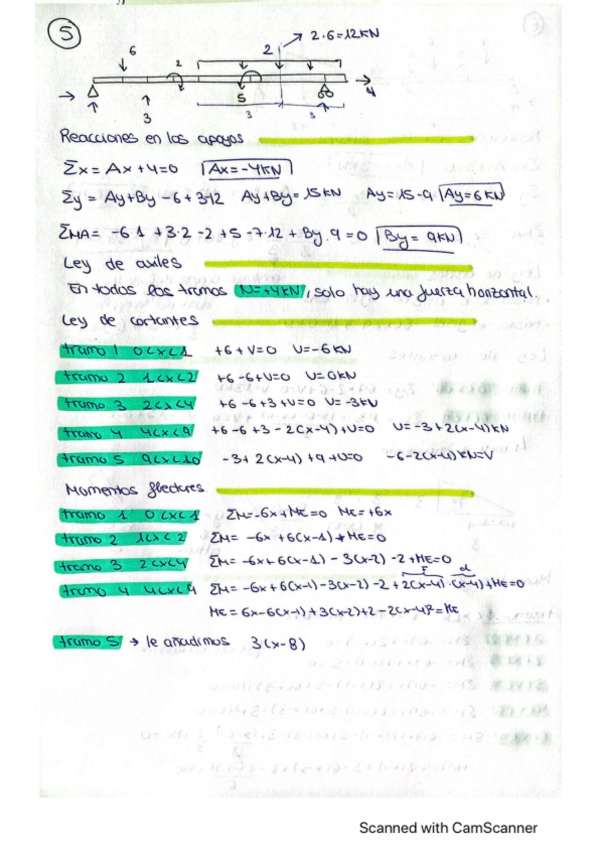 5
2·6=12KN
6
2
2
5
4
3
3
3
Reacciones en los apoyos
Σx = Ax+4=0 Ax=-4KN
Σy = Ay+By -6+3-12 Ay+By=15KN Ay=15-9 Ay=6KN
ΣMA= -6·1 +3·2 -2 +5 -7·12 + By·9 =0 By=9KN
Ley de axiles
En todos los tramos N=+4KN, solo hay una fuerza horizontal.
Ley de cortantes
tramo 1 0<x<1 +6+V=0 V=-6KN
tramo 2 1<x<2 +6-6+V=0 V=0KN
tramo 3 2<x<4 +6-6+3+V=0 V=-3KN
tramo 4 4<x<9 +6-6+3-2(x-4)+V=0 V=-3+2(x-4)KN
tramo 5 9<x<10 -3+2(x-4)+9+V=0 -6-2(x-4)KN=V
Momentos flectores.
tramo 1 0<x<1 ΣM=-6x+ME=0 ME=+6x
tramo 2 1<x<2 ΣM= -6x+6(x-1)+ME=0
tramo 3 2<x<4 ΣM= -6x+6(x-1)-3(x-2)-2+ME=0
F d
tramo 4 4<x<9 ΣM= -6x+6(x-1)-3(x-2)-2+2(x-4)·(x-4)+ME=0
ME= 6x-6(x-1)+3(x-2)+2-2(x-4)²=ME
tramo 5 → le añadimos 3(x-8)
Scanned with CamScanner